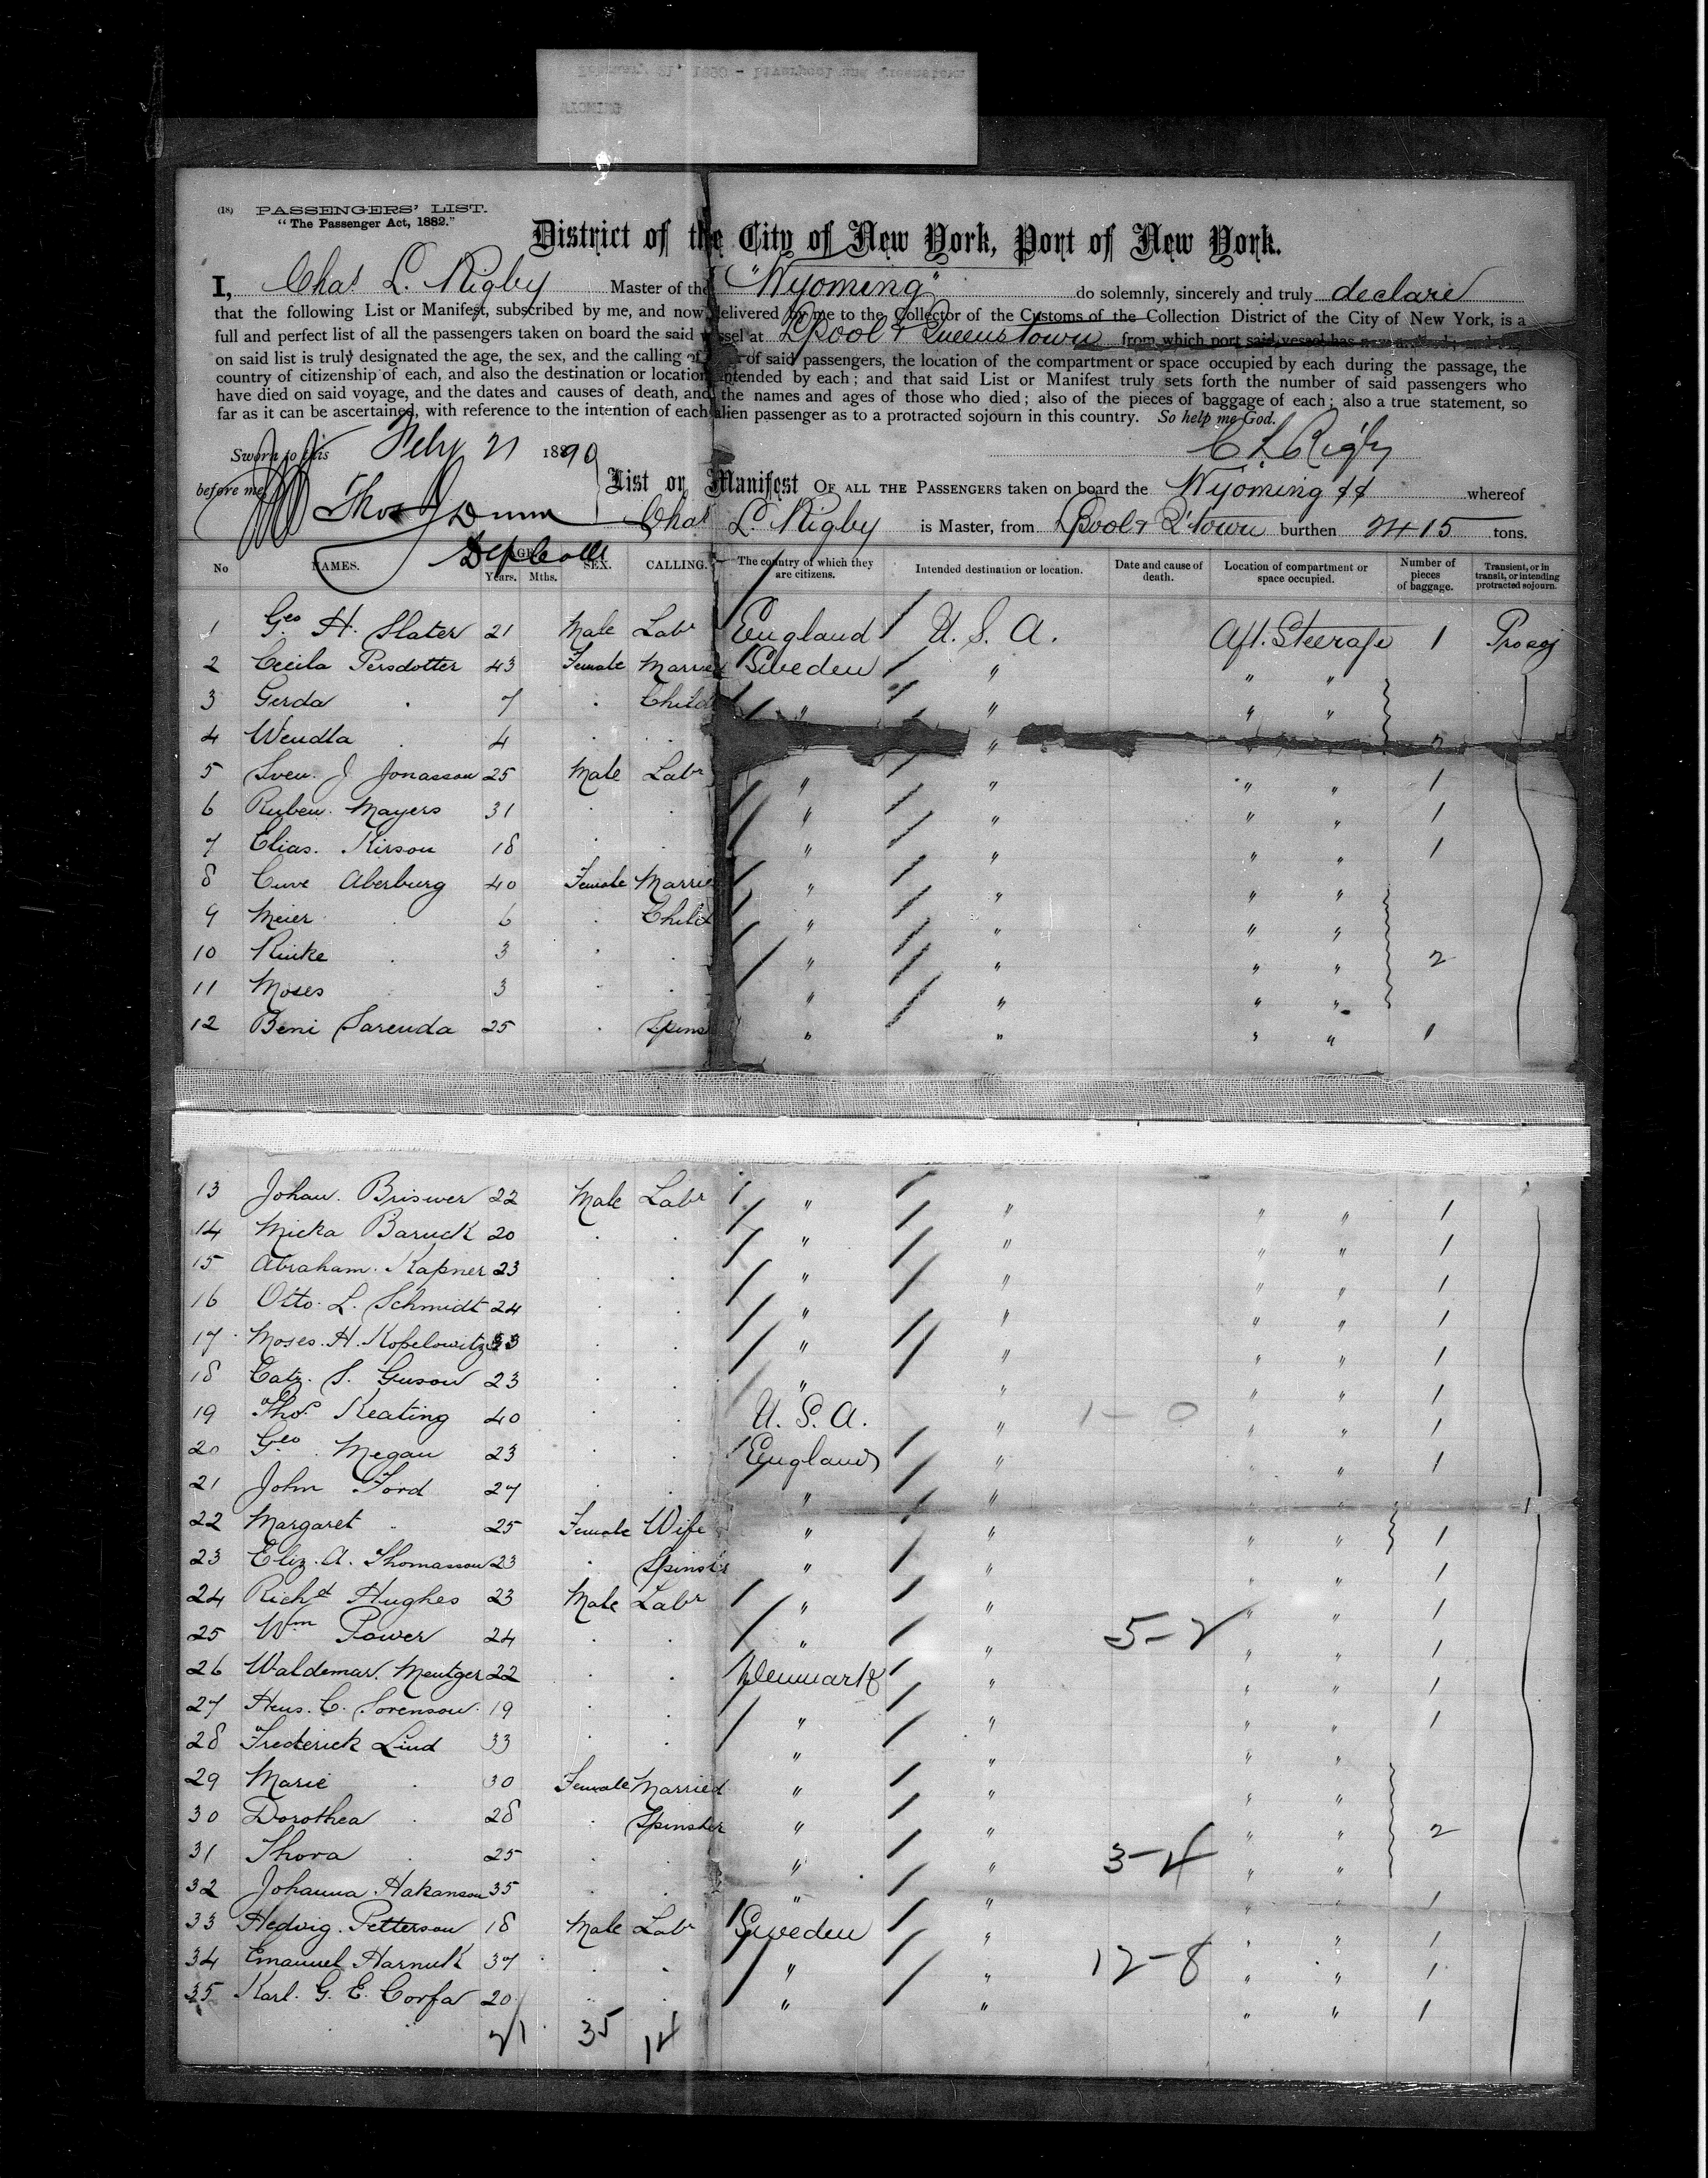 (18) PASSENGERS' LIST.
"The Passenger Act, 1882."
District of the City of New York, Port of New York.
I, Chas L. Rigby Master of the "Wyoming" do solemnly, sincerely and truly declare
that the following List or Manifest, subscribed by me, and now delivered by me to the Collector of the Customs of the Collection District of the City of New York, is a
full and perfect list of all the passengers taken on board the said vessel at Lpool & Queenstown from which port said vessel has
on said list is truly designated the age, the sex, and the calling of of said passengers, the location of the compartment or space occupied by each during the passage, the
country of citizenship of each, and also the destination or location intended by each; and that said List or Manifest truly sets forth the number of said passengers who
have died on said voyage, and the dates and causes of death, and the names and ages of those who died; also of the pieces of baggage of each; also a true statement, so
far as it can be ascertained, with reference to the intention of each alien passenger as to a protracted sojourn in this country. So help me God.
Sworn to this Feby 21 1890 C L Rigby
before me Thos J Dunn
List or Manifest OF ALL THE PASSENGERS taken on board the Wyoming SS whereof
Chas L. Rigby is Master, from Lpool & Q'town burthen 2415 tons.
No NAMES. AGE Years. Mths. SEX. CALLING. The country of which they are citizens. Intended destination or location. Date and cause of death. Location of compartment or space occupied. Number of pieces of baggage. Transient, or in transit, or intending protracted sojourn.
1 Geo H. Slater 21 Male Labr England U. S. A. Aft. Steerage 1 Pro soj
2 Cecila Persdotter 43 Female Married Sweden " " "
3 Gerda . 7 . Child " " " "
4 Wendla . 4 . . " " "
5 Sven. J Jonasson 25 Male Labr " " " " 1
6 Ruben. Mayers 31 . . " " " " 1
7 Elias. Kirson 18 . . " " " " 1
8 Cuve Aberburg 40 Female Married " " " "
9 Meier . 6 . Child " " " "
10 Rinke . 3 . . " " " " 2
11 Moses 3 . . " " " "
12 Beni Sarenda 25 . Spins " " " " 1
13 Johan. Briswer 22 Male Labr " " " " 1
14 Micka Baruck 20 . . " " " " 1
15 Abraham. Kapner 23 . . " " " " 1
16 Otto. L. Schmidt 24 . . " " " " 1
17 Moses. H. Kopelowitz 33 . . " " " " 1
18 Catz. S. Guson 23 . . " " " " 1
19 Thos. Keating 40 . . U. S. A. " 1-0 " " 1
20 Geo. Megan 23 . . England " " " 1
21 John Ford 27 . . " " " "
22 Margaret . 25 Female Wife " " " " 1
23 Eliz. A. Thomasson 23 . Spinstr " " " " 1
24 Richd Hughes 23 Male Labr " " " " 1
25 Wm Power 24 . . " " 5-2 " " 1
26 Waldemar. Mentger 22 . . Denmark " " " 1
27 Hens. C. Sorenson. 19 . . " " " " 1
28 Frederick Lind 33 . . " " " "
29 Marie . 30 Female Married " " " "
30 Dorothea . 28 . Spinster " " " " 2
31 Thora . 25 . . " " 3-4 " "
32 Johanna Hakanson 35 . . " " " " 1
33 Hedvig. Petterson 18 Male Labr Sweden " " " 1
34 Emanuel Harnuk 37 . . " " 12-8 " " 1
35 Karl. G. E. Corfa 20 . . " " " " 1
21 35 14